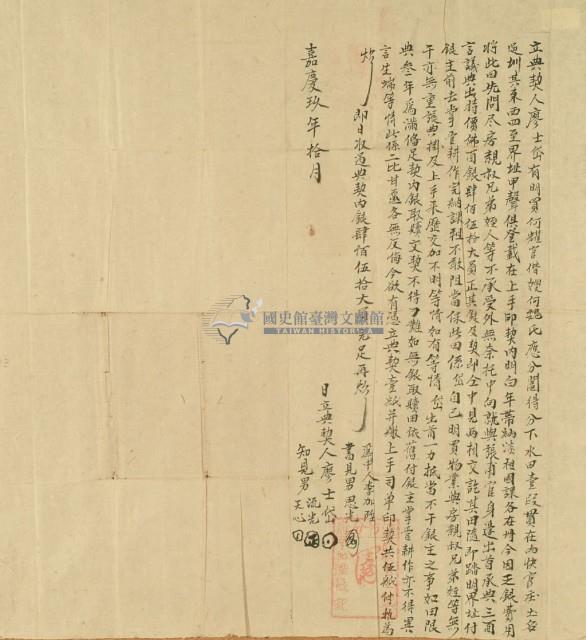 立典契人廖士岱有明買何耀官借嫂何魏氏應分鬮得分下水田壹段貫在內快官庄土名
圳其東西四至界址甲聲俱登載在上手印契內明白年帶納淡祖國課各在冊今因乏銀費用
將此田先問尽房親叔兄弟姪人等不承受外無奈托中向就與張甫官身邊出首承典三面
言議典出持價佛面銀肆佰伍拾大員正其銀及契即仝中見兩相交訖其田隨即踏明界址付
銀主前去掌管耕作完納課租不敢阻當保此田係岱自己明買物業與房親叔兄弟姪等無
干亦無重張典掛及上手來歷交加不明等情如有等情岱出首一力抵當不干銀主之事如田限
典叁年為滿俻足契內銀取贖文契不得刁難如無銀取贖田依舊付銀主掌管耕作亦不得異
言生端等情此係二比甘愿各無反悔今欲有憑立典契壹紙并繳上手司單印契共伍紙付執為
炤
即日收過典契內銀肆佰伍拾大員完足再炤
為中人李加陞
書見男思光
嘉慶玖年拾月 日立典契人廖士岱
知見男 流光 天心
國史館臺灣文獻館
TAIWAN HISTORICA